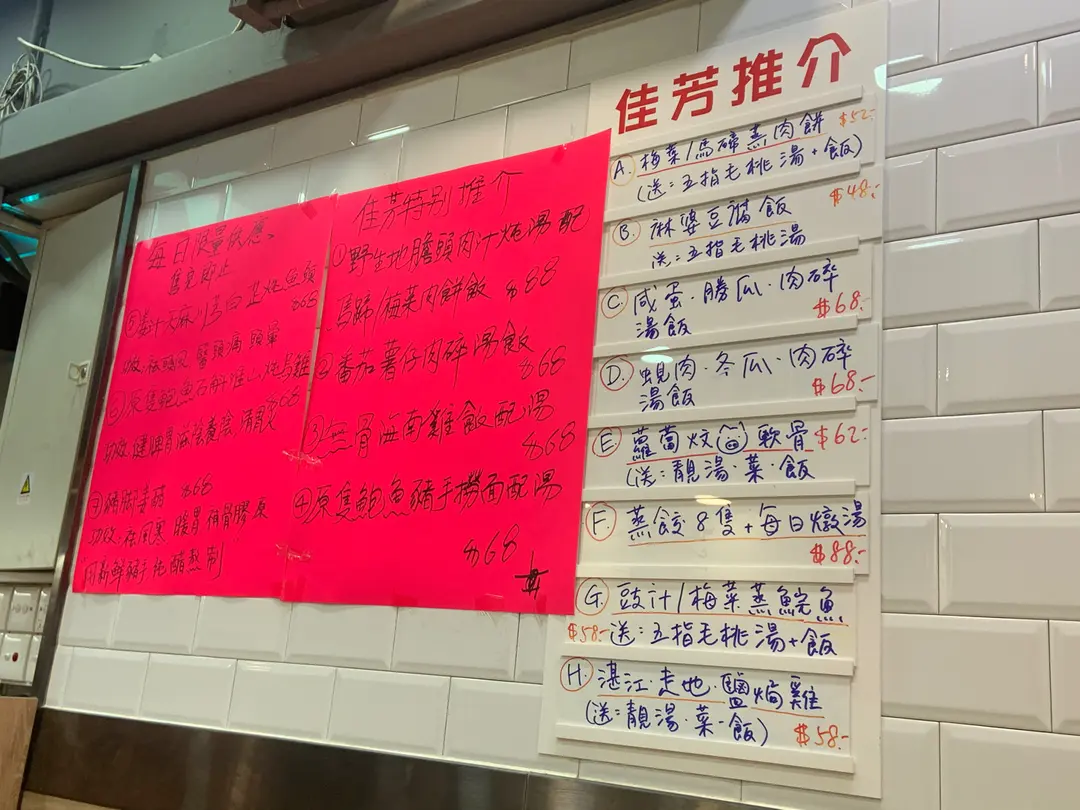 每日限量供應、
售完即止
天麻川芎白芷炖魚頭
$68
功效:祛頭風 醫頭痛 頭暈
原隻鮑魚石斛淮山炖烏雞
功效:健脾胃滋陰養陰清
$68
功效:祛風寒 暖胃 有骨膠原
新鮮豬手
佳芳特别推介
①野生地膽頭肉汁炖湯配
馬蹄/梅菜肉餅飯 $88
②番茄薯仔肉碎湯飯
$68
③無骨海南雞飯配湯
$68
④原隻鮑魚豬手撈面配湯
$68
佳芳推介
A. 梅菜/馬蹄蒸肉餅 $52-
(送:五指毛桃湯+飯)
B. 麻婆豆腐飯 $48-
送:五指毛桃湯
C 咸蛋·勝瓜·肉碎
湯飯 $68-
D. 蜆肉·冬瓜·肉碎
湯飯 $68-
E 蘿蔔炆軟骨 $62-
(送:靚湯·菜·飯
F. 蒸餃8隻+每日燉湯
$88-
G. 豉汁/梅菜蒸鯇魚
$58- 送:五指毛桃湯+飯
H. 湛江·走地·鹽焗雞
(送:靚湯·菜·飯) $58-